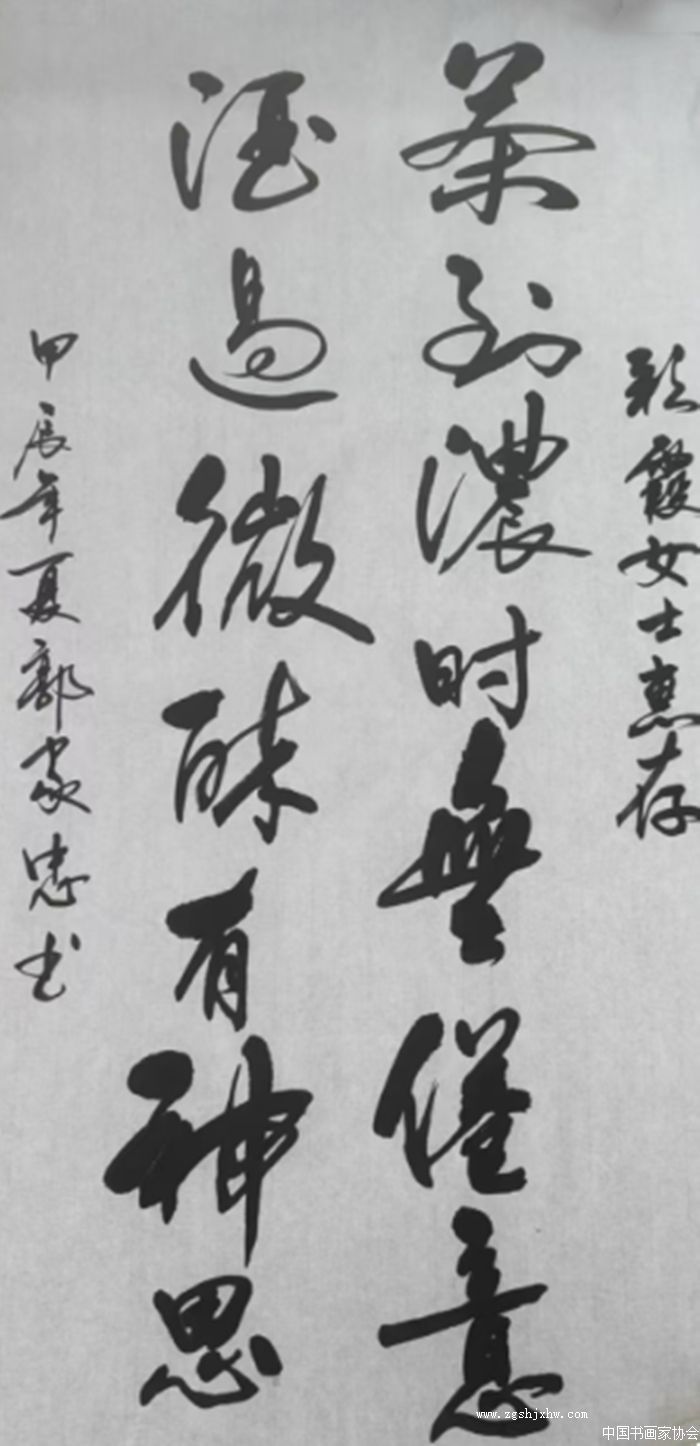 彩霞女士惠存
茶到濃时無倦意
酒過微酣有神思
甲辰年夏郭家忠书
www.zgshjxhw.com
中国书画家协会